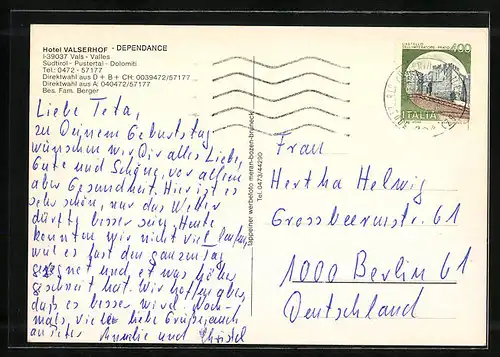 Hotel VALSERHOF - DEPENDANCE
I-39037 Vals - Valles
Südtirol - Pustertal - Dolomiti
Tel.: 0472 - 57177
Direktwahl aus D + B + CH: 0039472/57177
Direktwahl aus A: 040472/57177
Bes. Fam. Berger
Liebe Teta,
zu Deinem Geburtstag
wünschen wir Dir alles Liebe,
Gute und Schöne, vor allem
aber Gesundheit. Hier ist es
sehr schön, nur das Wetter
dürfte besser sein. Heute
konnten wir nicht viel laufen,
weil es fast den ganzen Tag
geregnet und etwas höher
geschneit hat. Wir hoffen aber,
daß es besser wird. Noch-
mals viele liebe Grüße, auch
an Peter Annelie und Christel
tappeiner werbefoto meran-bozen-bruneck
Tel. 0473/44290
CASTELLO
DELL'IMPERATORE - PRATO
400
ITALIA
Frau
Hertha Helwig
Grossbeerenstr. 61
1000 Berlin 61
Deutschland